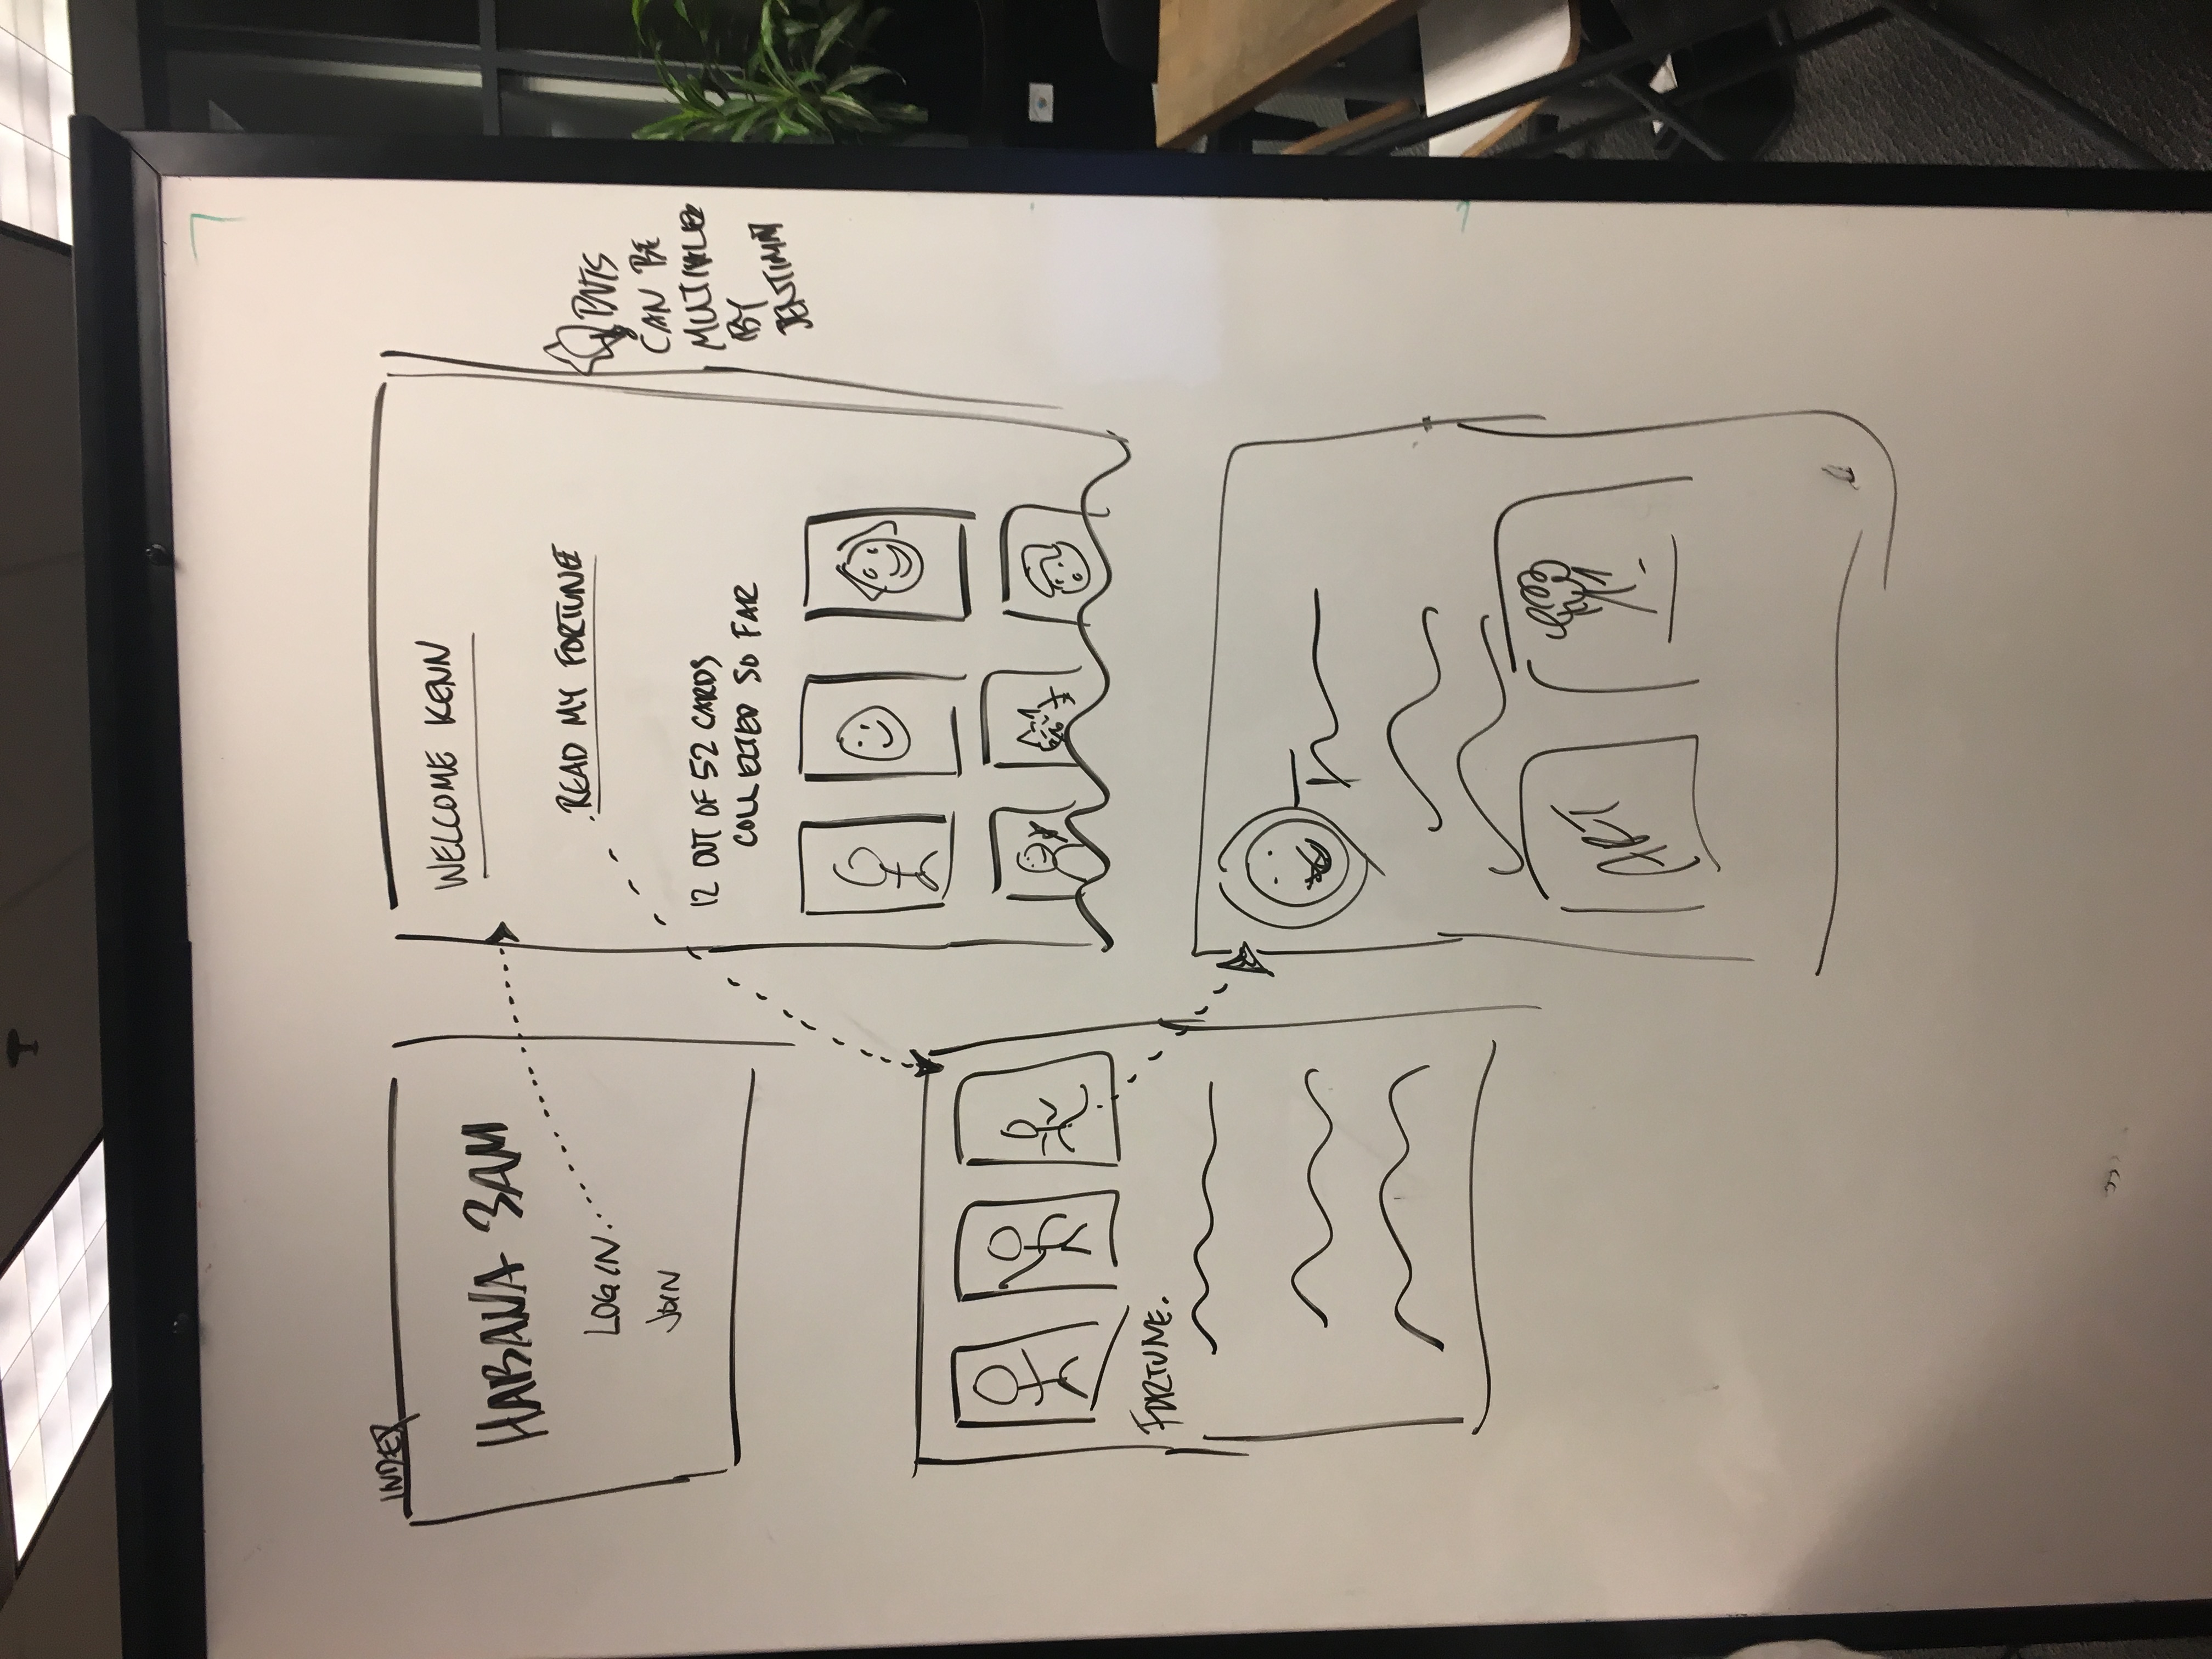 INDEX
HABANA 3AM
LOGIN
JOIN
WELCOME KENN
READ MY FORTUNE
12 OUT OF 52 CARDS
COLLECTED SO FAR
CAN BE
BY
FORTUNE.
ART